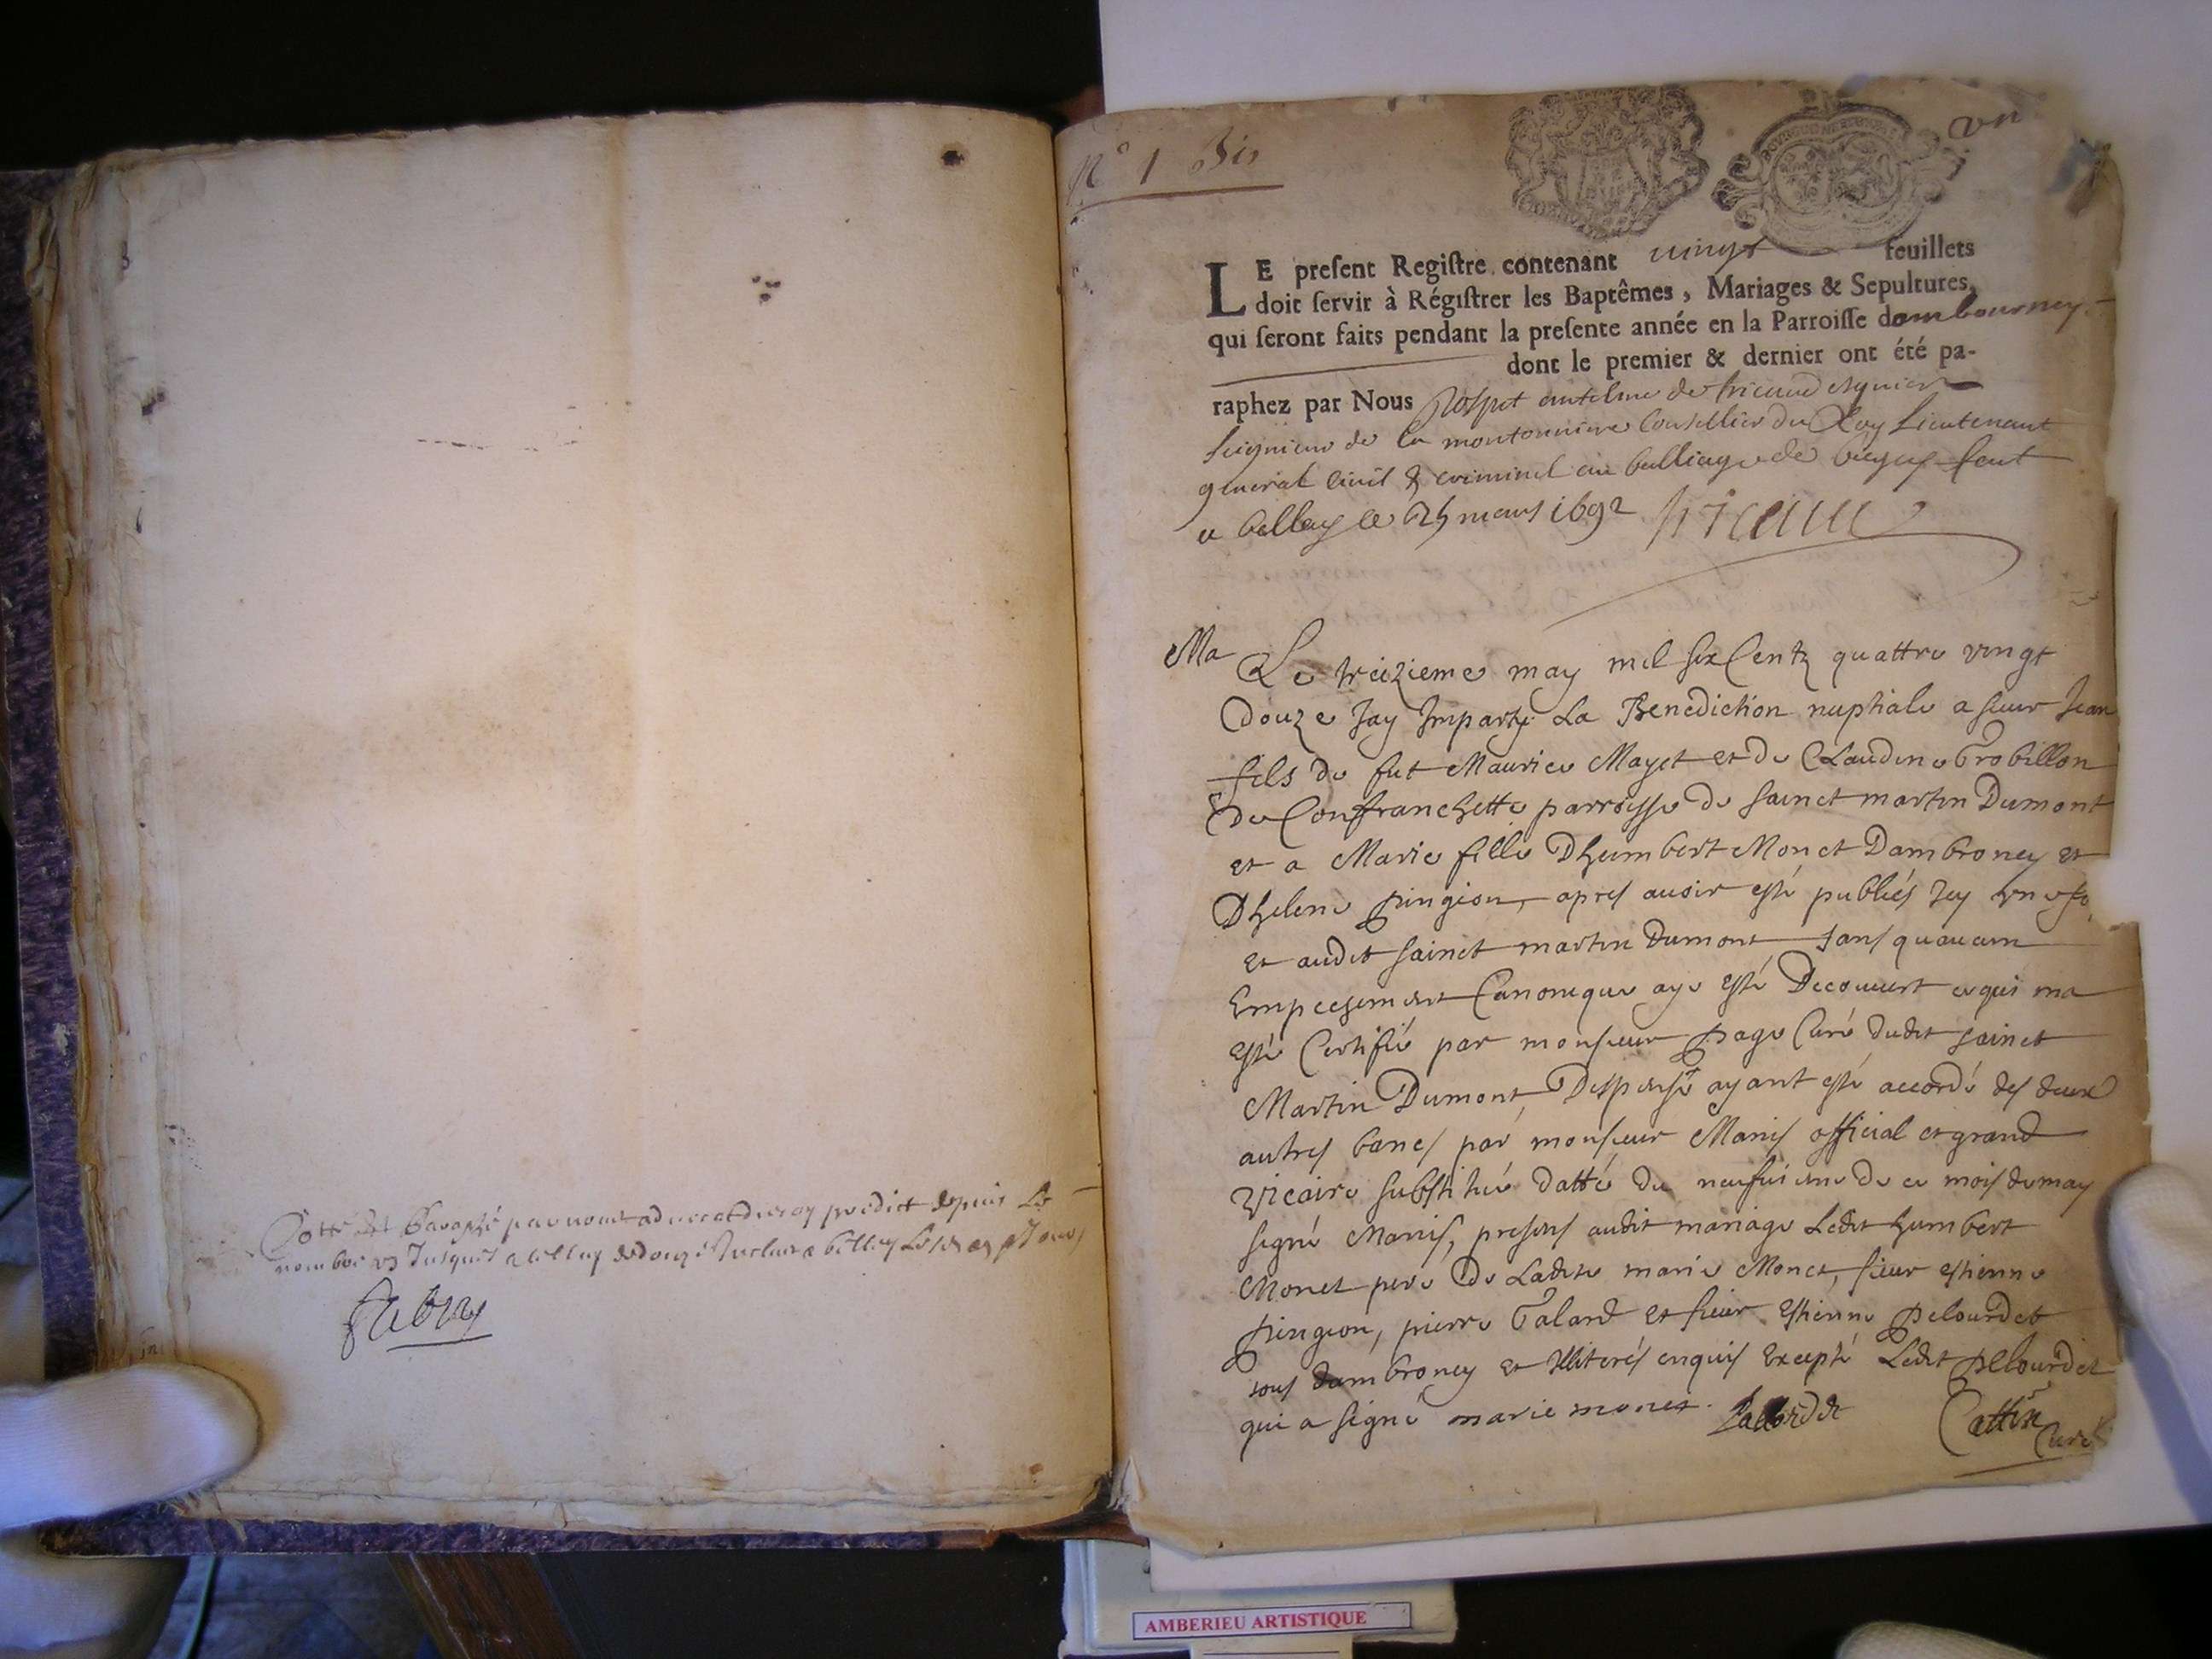 Cotté et Paraphé par nous advocat du roy predict depuis Le
nombre un Jusques a celluy de douze Incluse a belley
Fabry
N° 1 Bis
un
LE preſent Regiſtre contenant vingt feuillets
doit ſervir à Régiſtrer les Baptêmes, Mariages & Sepultures,
qui ſeront faits pendant la preſente année en la Parroiſſe dambourney
dont le premier & dernier ont été pa-
raphez par Nous Prospet antelme de tricaud esquier
seigneur de la montonniere Conseillier du Roy Lieutenant
general Civil & criminel au balliage de bugey fait
a belley le 25 mars 1692 tricaud
Ma
Le treizieme may mil six Centz quattre vingt
Douze Jay Imparty La Benediction nuptiale a sieur Jean
fils de fut Maurice Mayet et de Claudine Trobillon
de Confranchette parroisse de sainct martin Dumont
et a Marie fille Dhumbert Monet Dambroney et
Dhelene pingion, apres avoir esté publiés Icy une fo
et audit sainct martin Dumont sans quaucun
Empechement Canonique aye esté Decouvert ce qui ma
esté Certifié par monsieur page Curé dudit sainct
Martin Dumont, Dispense ayant esté accordé des deux
autres bancs par monsieur Manis official et grand
vicaire substitué datté du neufuieme de ce mois de may
signé Manis, presens audit mariage Ledit humbert
Monet pere de Ladite marie Monet, sieur estienne
pingion, pierre Galand et sieur Estienne pelourdet
tous dambroney et Illiterés enquis Excepté Ledit pelourdet
qui a signé marie monet. Palordet Cattin
Curé
AMBERIEU ARTISTIQUE